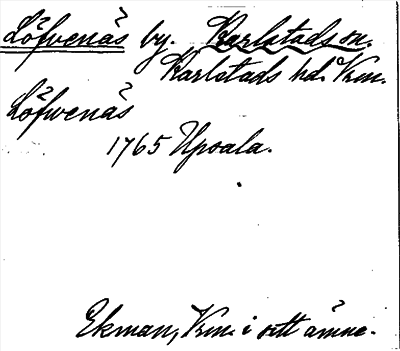 Löfvenäs by. Karlstads sn.
Karlstads hd. Vrm.
Löfvenäs
1765 Upsala.
Ekman, Vrm. i sitt ämne.